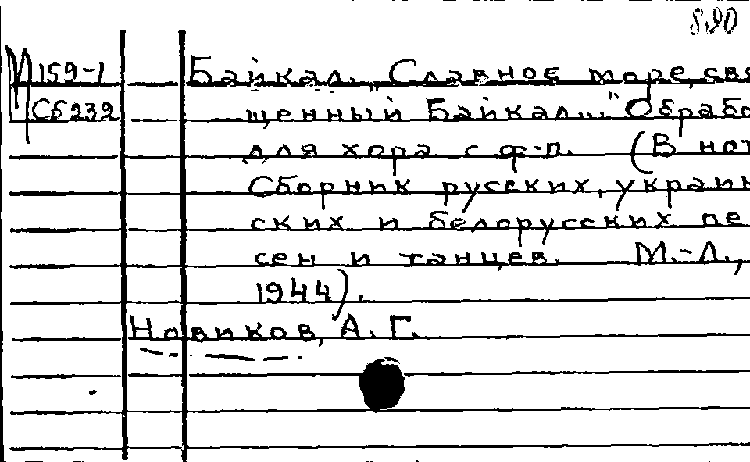 890
М 159-1 Байкал. „Славное море, свя
Сб 232 щенный Байкал..." Обрабо
для хора с ф-п. (В нот
Сборник русских, украин
ских и белорусских пе
сен и танцев. М.-Л.,
1944).
Новиков, А. Г.